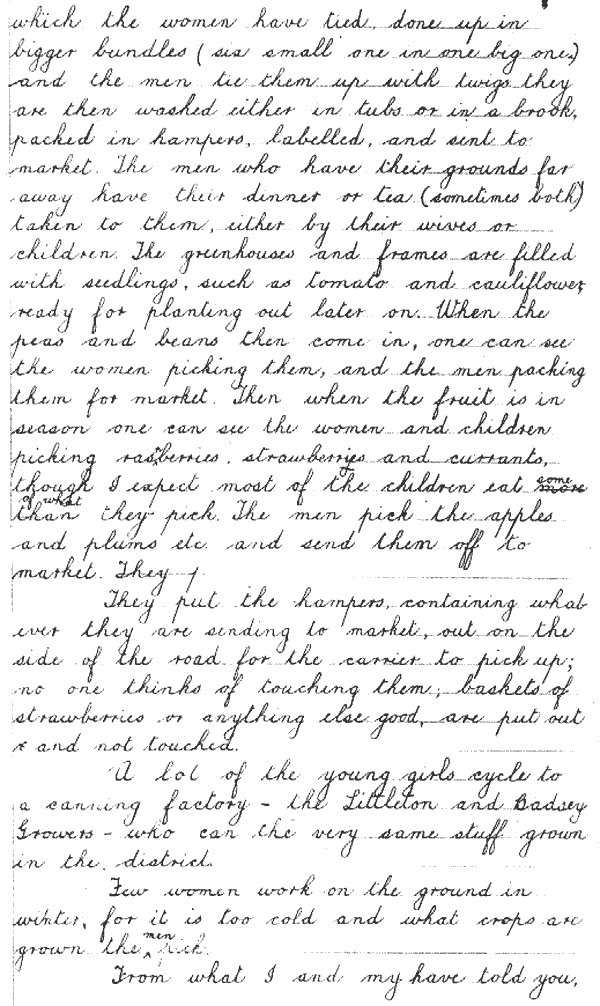 which the women have tied, done up in
bigger bundles (six small one in one big one.)
and the men tie them up with twigs they
are then washed either in tubs or in a brook,
packed in hampers, labelled, and sent to
market. The men who have their grounds far
away have their dinner or tea (sometimes both)
taken to them, either by their wives or
children. The greenhouses and frames are filled
with seedlings, such as tomato and cauliflower,
ready for planting out later on. When the
peas and beans then come in, one can see
the women picking them, and the men packing
them for market. Then when the fruit is in
season one can see the women and children
picking raspberries, strawberries and currants,
though I expect most of the children eat some more
of what
than they pick. The men pick the apples
and plums etc and send them off to
market. They
They put the hampers, containing what
ever they are sending to market, out on the
side of the road for the carrier to pick up;
no one thinks of touching them; baskets of
strawberries or anything else good, are put out
and not touched.
A lot of the young girls cycle to
a canning factory - the Littleton and Badsey
Growers - who can the very same stuff grown
in the district.
Few women work on the ground in
winter, for it is too cold and what crops are
grown the men pick.
From what I and my have told you,